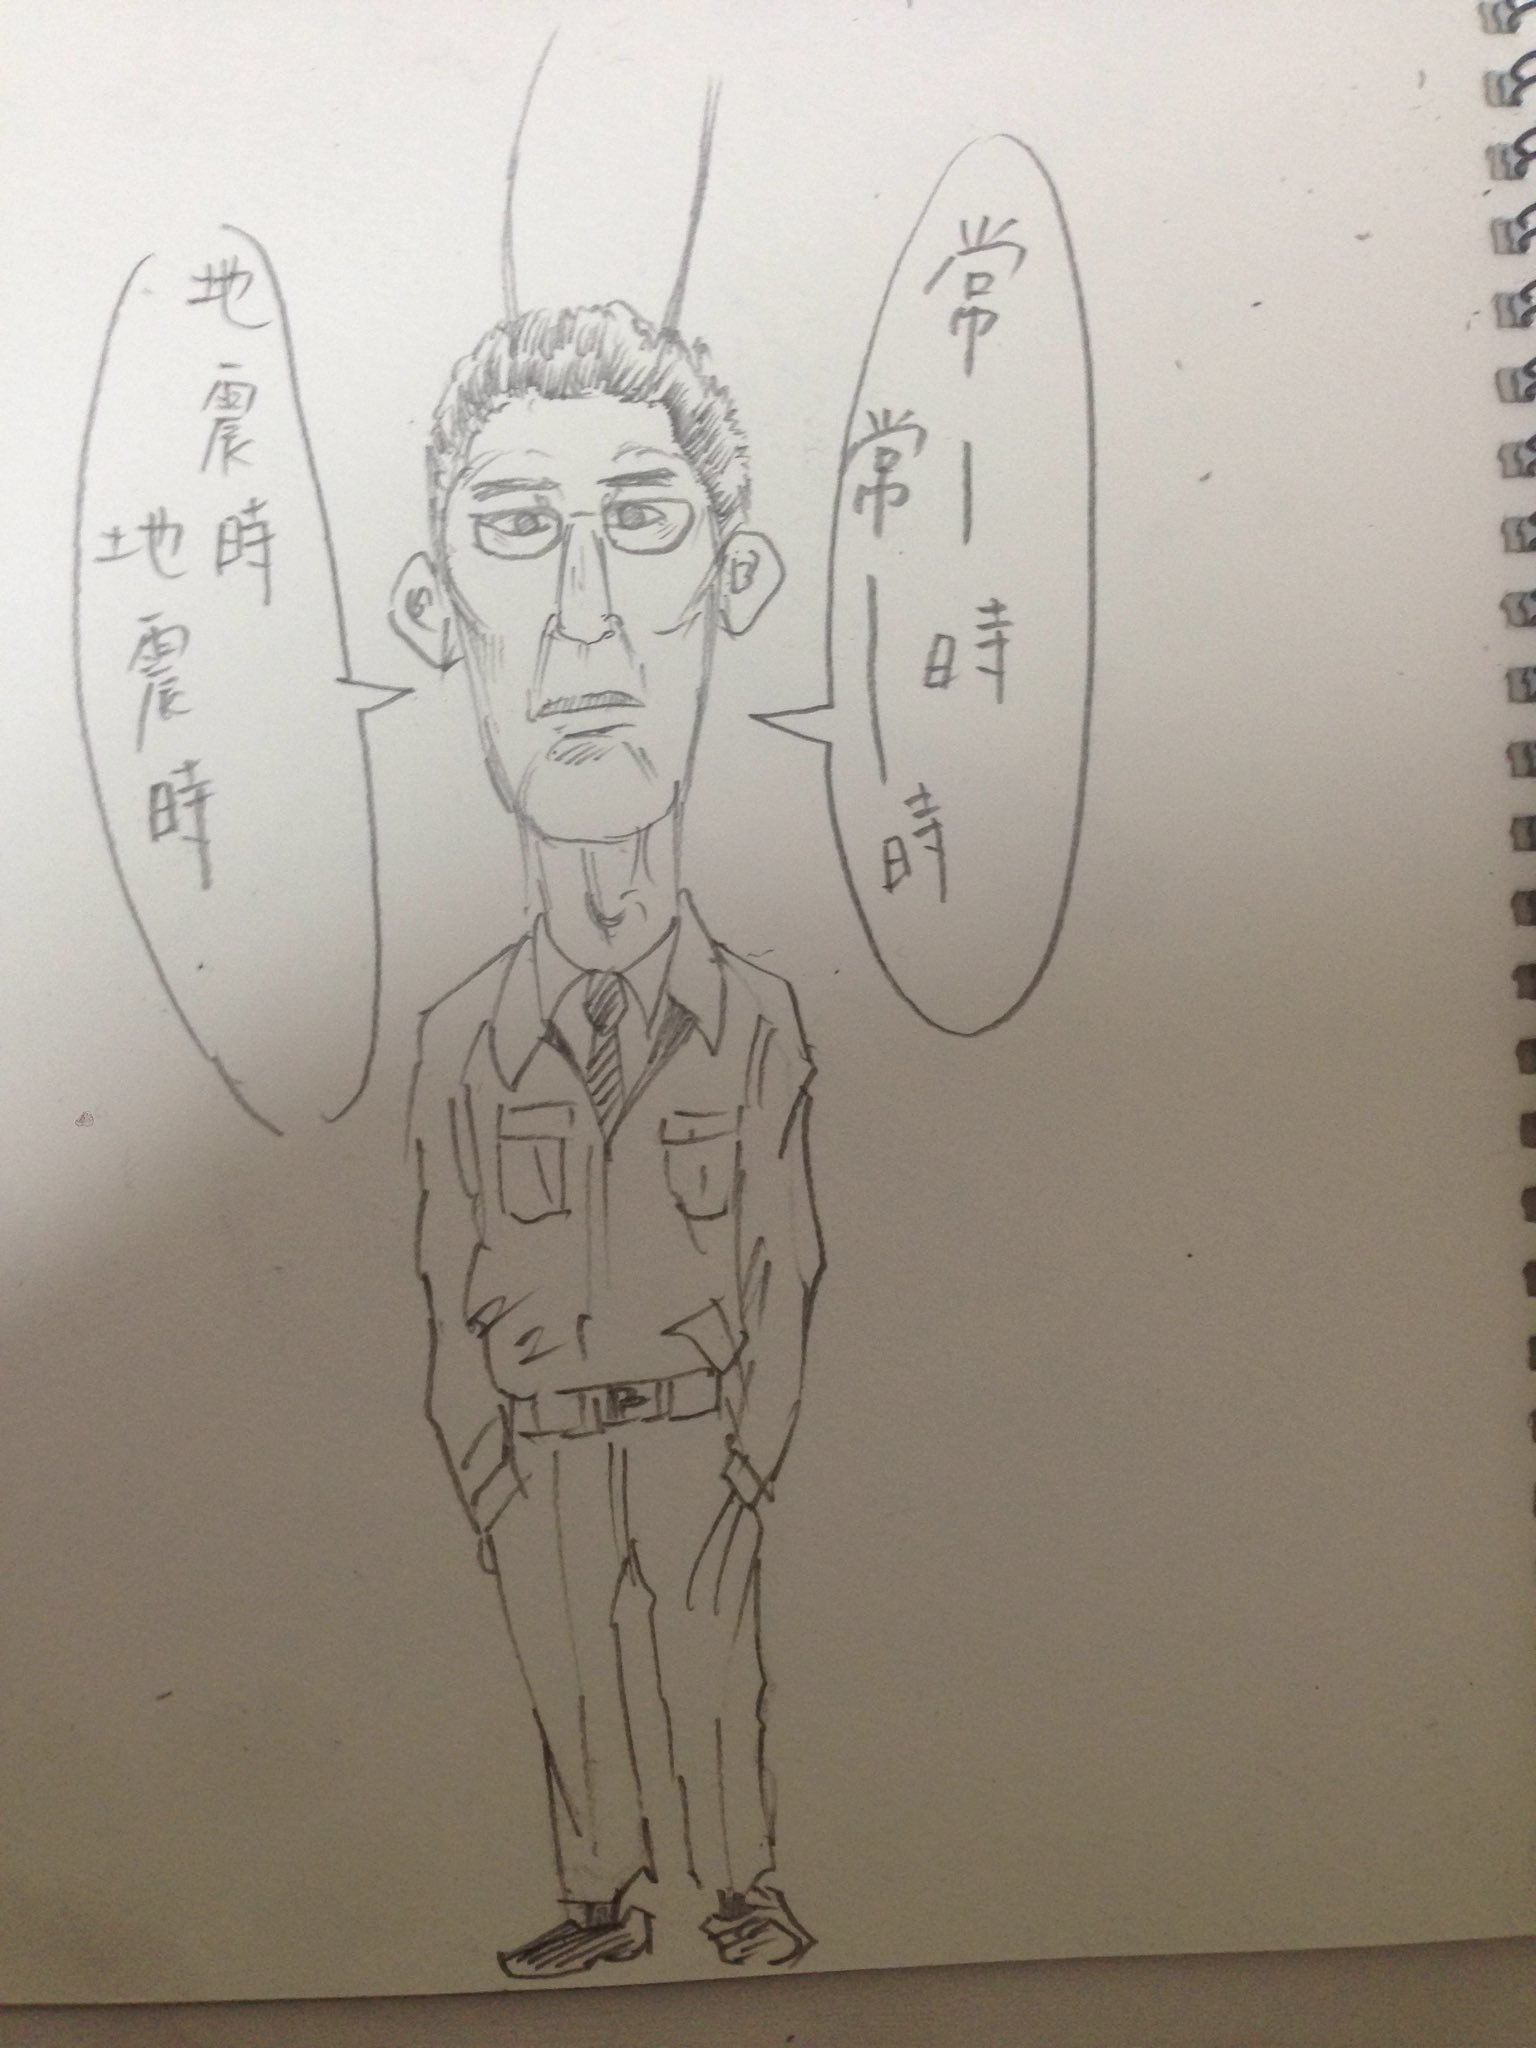 常ー時
常ー時
地震時
地震時